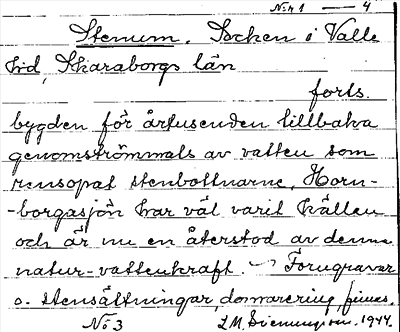 No 41 — 4
Stenum. Socken i Valle
hrd, Skaraborgs län
forts.
bygden för årtusenden tillbaka
genomströmmats av vatten som
rensopat stenbottnarne, Horn-
-borgasjön har väl varit källan
och är nu en återstod av denna
natur-vattenkraft. Forngravar
o. stensättningar, domarering finnes.
No 3 1944.